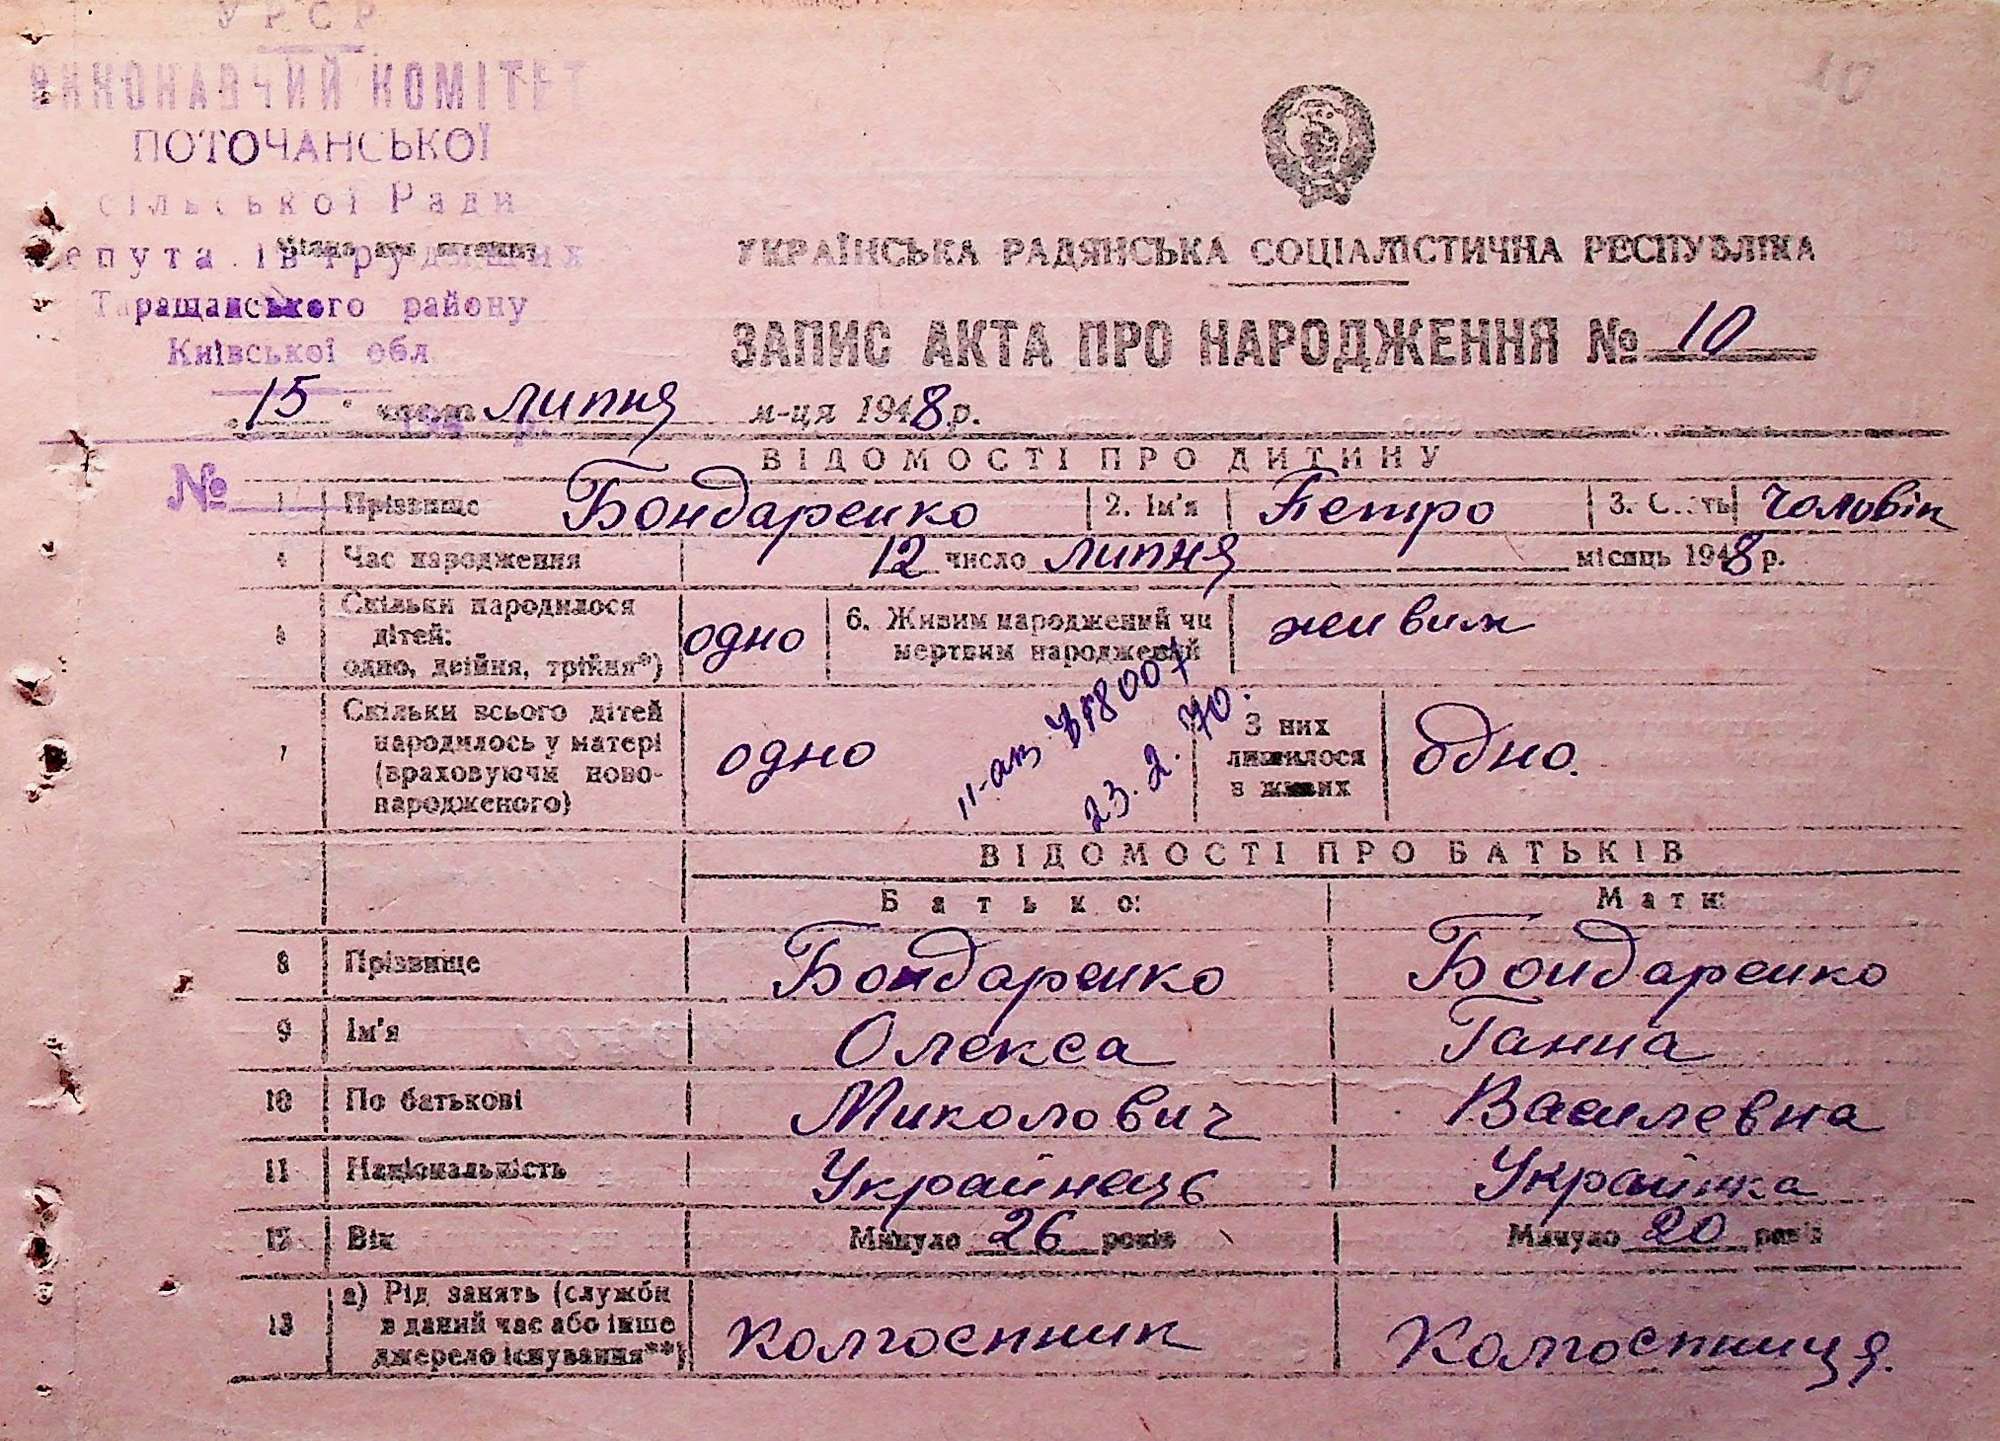 УРСР
ВИКОНАВЧИЙ КОМІТЕТ
ПОТОЧАНСЬКОЇ
сільської Ради
депутатів трудящих
Таращанського району
Київської обл
№
10
УКРАЇНСЬКА РАДЯНСЬКА СОЦІАЛІСТИЧНА РЕСПУБЛІКА
ЗАПИС АКТА ПРО НАРОДЖЕННЯ № 10
„15“ числа липня м-ця 1948 р.
ВІДОМОСТІ ПРО ДИТИНУ
1 Прізвище Бондаренко 2. Ім'я Петро 3. Стать чоловік
4 Час народження 12 число липня місяць 1948 р.
5 Скільки народилося дітей: одно, двійня, трійня*) одно 6. Живим народжений чи мертвим народжений живим
7 Скільки всього дітей народилось у матері (враховуючи новонародженого) одно З них лишилося в живих одно.
23.2.70.
ВІДОМОСТІ ПРО БАТЬКІВ
Батько: Мати:
8 Прізвище Бондаренко Бондаренко
9 Ім'я Олекса Ганна
10 По батькові Миколович Василевна
11 Національність Українець Українка
12 Вік Минуло 26 років Минуло 20 років
13 а) Рід занять (служби в даний час або інше джерело існування**) Колгоспник Колгоспниця.